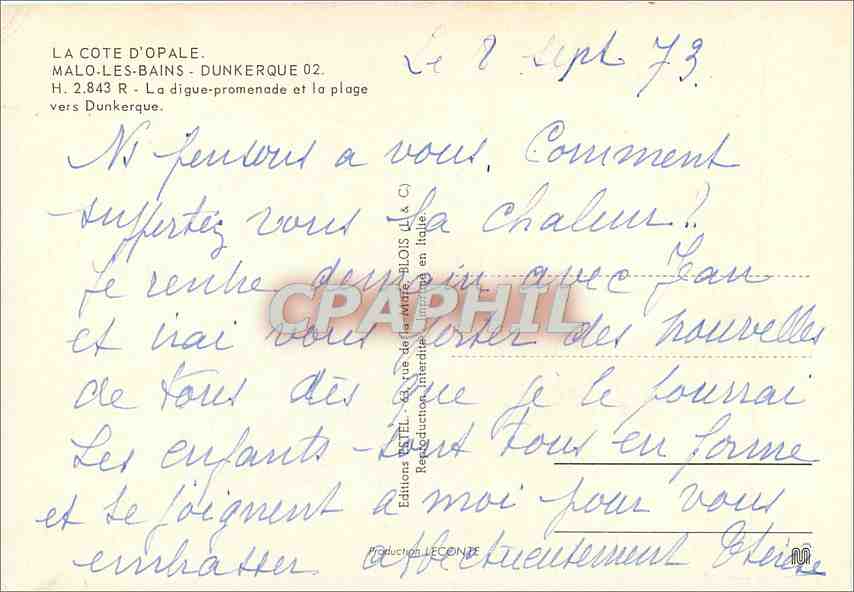 LA COTE D'OPALE.
MALO-LES-BAINS - DUNKERQUE 02.
H. 2.843 R - La digue-promenade et la plage
vers Dunkerque.
Le 8 sept 73.
Ns pensons a vous. Comment
supportez vous la chaleur?
Je rentre demain avec Jean
et irai vous porter des nouvelles
de tous dès que je le pourrai
Les enfants sont tous en forme
et se joignent a moi pour vous
embrasser affectueusement
Editions ESTEL - 63, rue de la Mare, BLOIS (L. & C)
Reproduction Interdite - Imprimé en Italie.
CPAPHIL
Production LECONTE